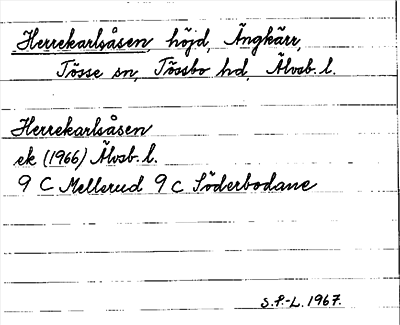 Herrekarlsåsen, höjd, Ängkärr,
Tösse sn, Tössbo hd, Älvsb. l.
Herrekarlsåsen
ek (1966) Älvsb. l.
9 C Mellerud 9 c Söderbodane
S.P.-L. 1967.